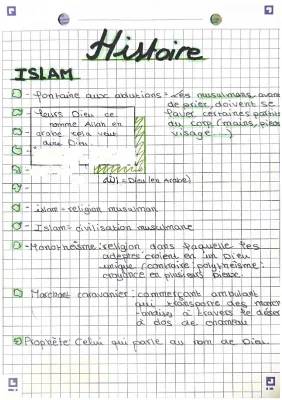 Histoire
ISLAM
- fontaine aux ablutions = Les musulmans, avant
de prier, doivent se
laver certaines parties
du corp (mains, pieds
visage ...)
leurs Dieu ce
nomme Allah en
arabe cela veut
dire Dieu
الله = Dieu (en Arabe)
- islam = religion musulman
- Islam = civilisation musulmane
- Monothéisme : religion dans laquelle les
adeptes croient en un Dieu
unique (contraire polythéisme :
croyance en plusieurs
- Marchant caravanier : commerçant ambulant
qui transporte des marc
-andises à travers le déser
à dos de chameau
Prophète Celui qui parle au nom de Dieu.